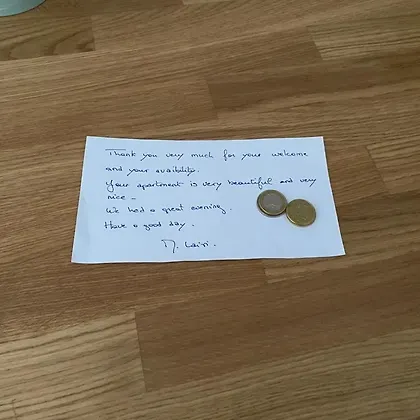 Thank you very much for your welcome
and your avaibility.
Your apartment is very beautiful and very
nice -
We had a great evening.
Have a good day.